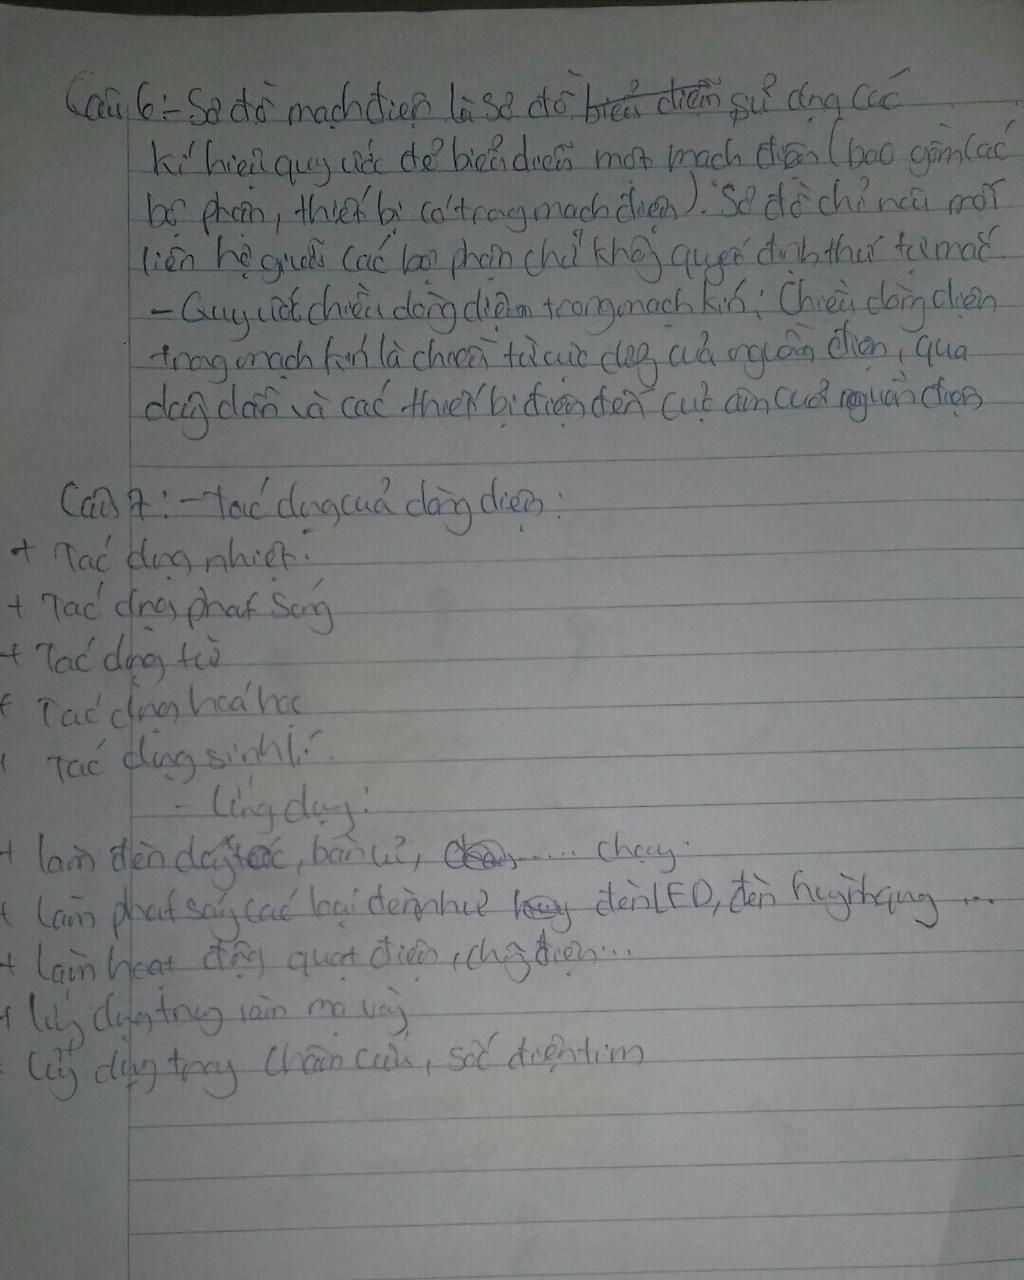 Câu 6: - Sơ đồ mạch điện là sơ đồ biểu diễn sử dụng các
kí hiệu quy ước để biểu diễn một mạch điện (bao gồm các
bộ phận, thiết bị có trong mạch điện). Sơ đồ chỉ nêu mối
liên hệ giữa các bộ phận chứ không quyết định thứ tự mắc
- Quy ước chiều dòng điện trong mạch kín: Chiều dòng điện
trong mạch kín là chiều từ cực dương của nguồn điện, qua
dây dẫn và các thiết bị điện đến cực âm của nguồn điện
Câu 7: - Tác dụng của dòng điện:
+ Tác dụng nhiệt.
+ Tác dụng phát sáng
+ Tác dụng từ
+ Tác dụng hoá học
+ Tác dụng sinh lí.
- Ứng dụng:
+ làm đèn dây tóc, bàn ủi, ..... chạy.
+ làm phát sáng các loại đèn như đèn LED, đèn huỳnh quang ...
+ làm hoạt động quạt điện, chuông điện...
+ Ứng dụng trong mạ vàng
Ứng dụng trong châm cứu, sốc điện tim